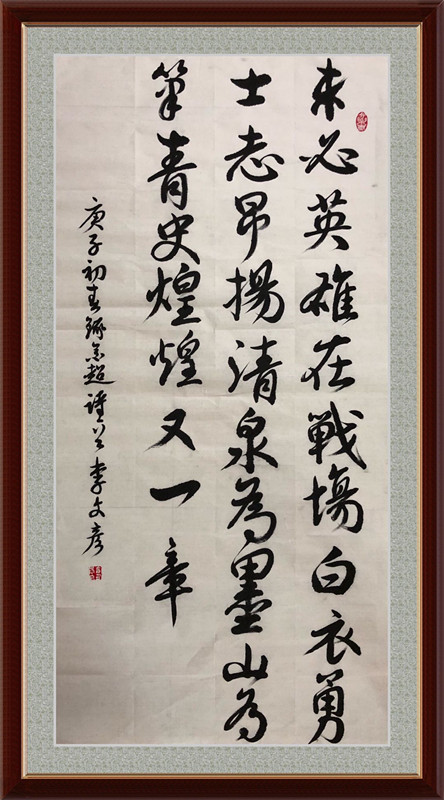 未必英雄在戰場白衣勇
士志昂揚清泉為墨山為
筆青史煌煌又一章
庚子初春錄超李文彦